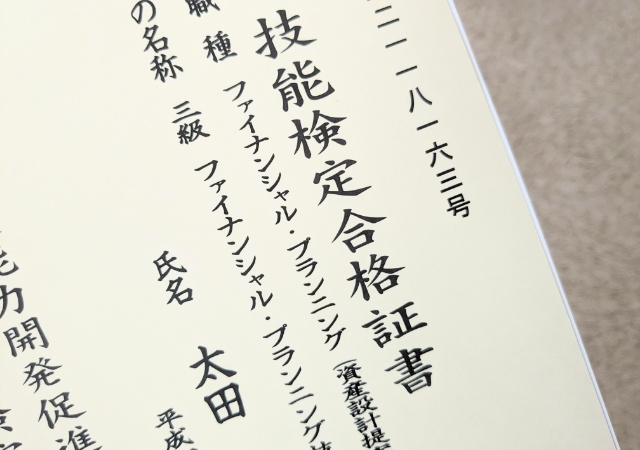 二一一八一六三号
技能検定合格証書
職種 ファイナンシャル・プランニング(資産設計提案
の名称 三級 ファイナンシャル・プランニング技
氏名 太田
平成
能力開発促進